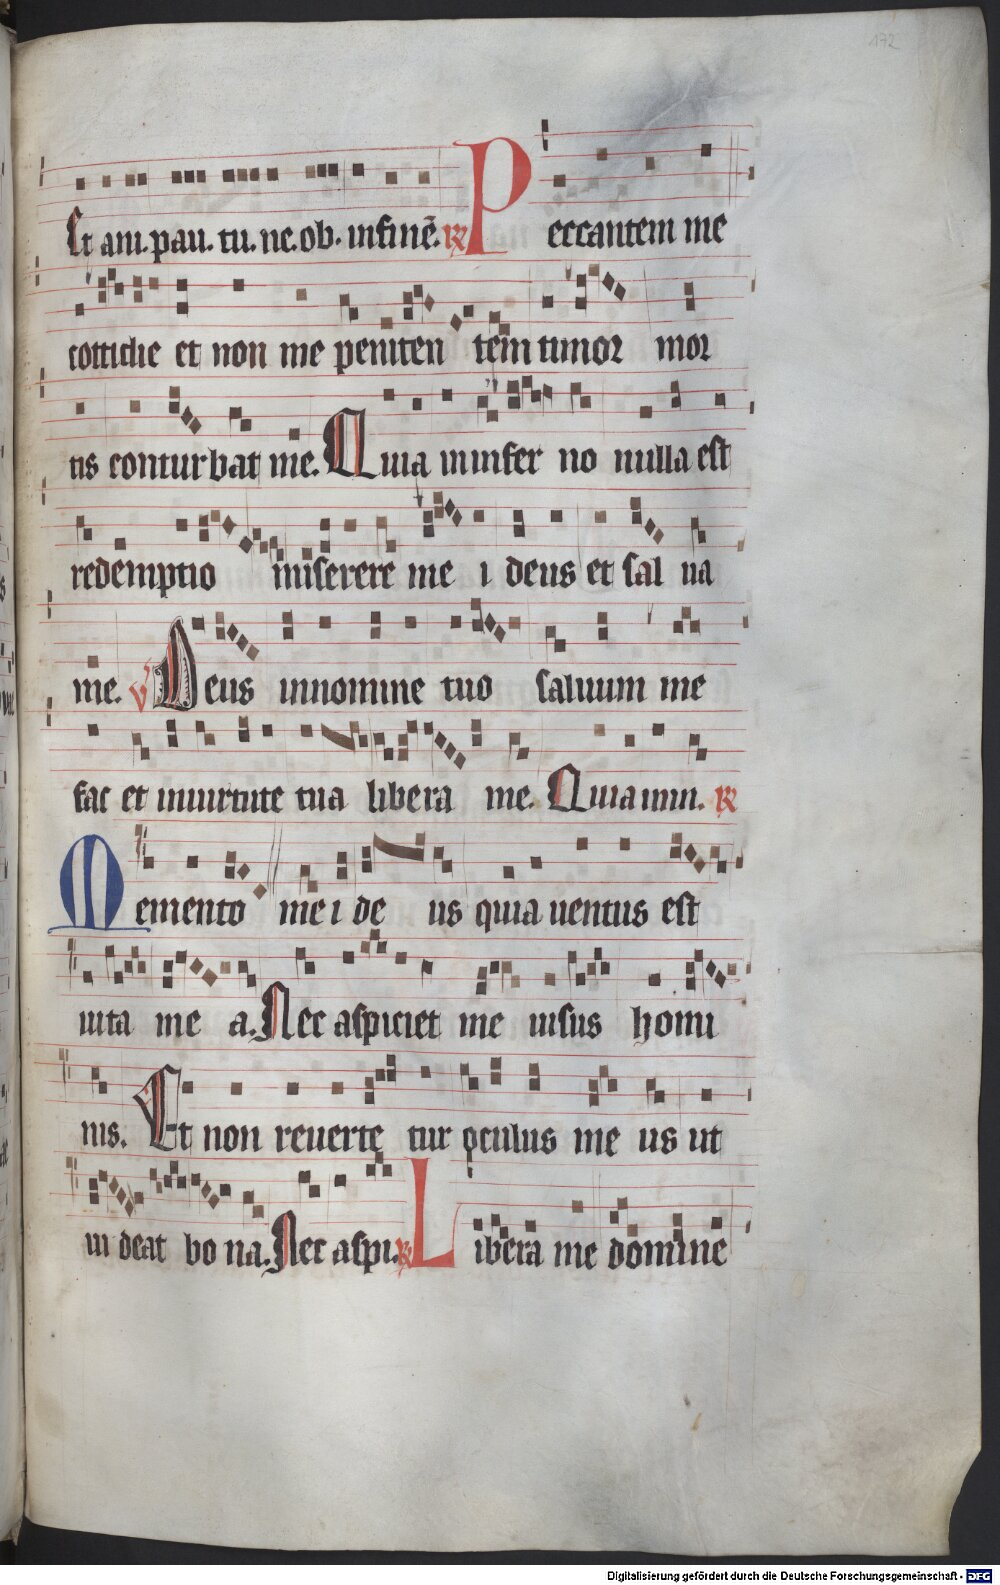 172
Et ani. pau. tu. ne. ob. infinē. R Peccantem me
cottidie et non me peniten tem timor mor
tis conturbat me. Quia in infer no nulla est
redemptio miserere me i deus et sal ua
me. V Deus innomine tuo saluum me
fac et inuirtute tua libera me. Quia inin. R
Memento me i de us quia uentus est
uita me a. Nec aspiciet me uisus homi
nis. Et non reuerte tur oculus me us ut
ui deat bo na. Nec aspi. R Libera me domine
Digitalisierung gefördert durch die Deutsche Forschungsgemeinschaft - DFG